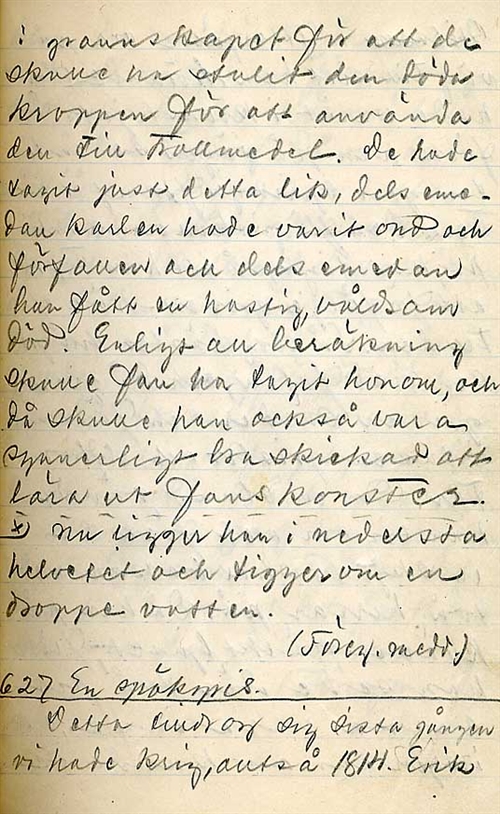 i grannskapet för att de
skulle ha stulit den döda
kroppen för att använda
den till trollmedel. De hade
tagit just detta lik, dels eme-
dan karlen hade varit ond och
förfallen och dels emedan
han fått en hastig, våldsam
död. Enligt all beräkning
skulle fan ha tagit honom, och
då skulle han också vara
synnerligt bra skickad att
lära ut fans konster.
x) Nu ligger han i nedersta
helvetet och tigger om en
droppe vatten.
(Föreg. medd.)
627 En spökspis.
Detta tilldrog sig sista gången
vi hade krig, alltså 1814. Erik